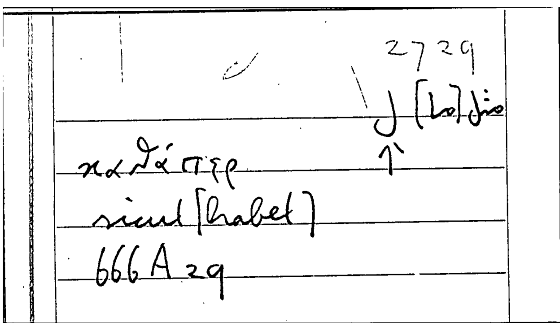 2729
مثل [ما] ل
↑
καθάπερ
sicut [habet]
666A29